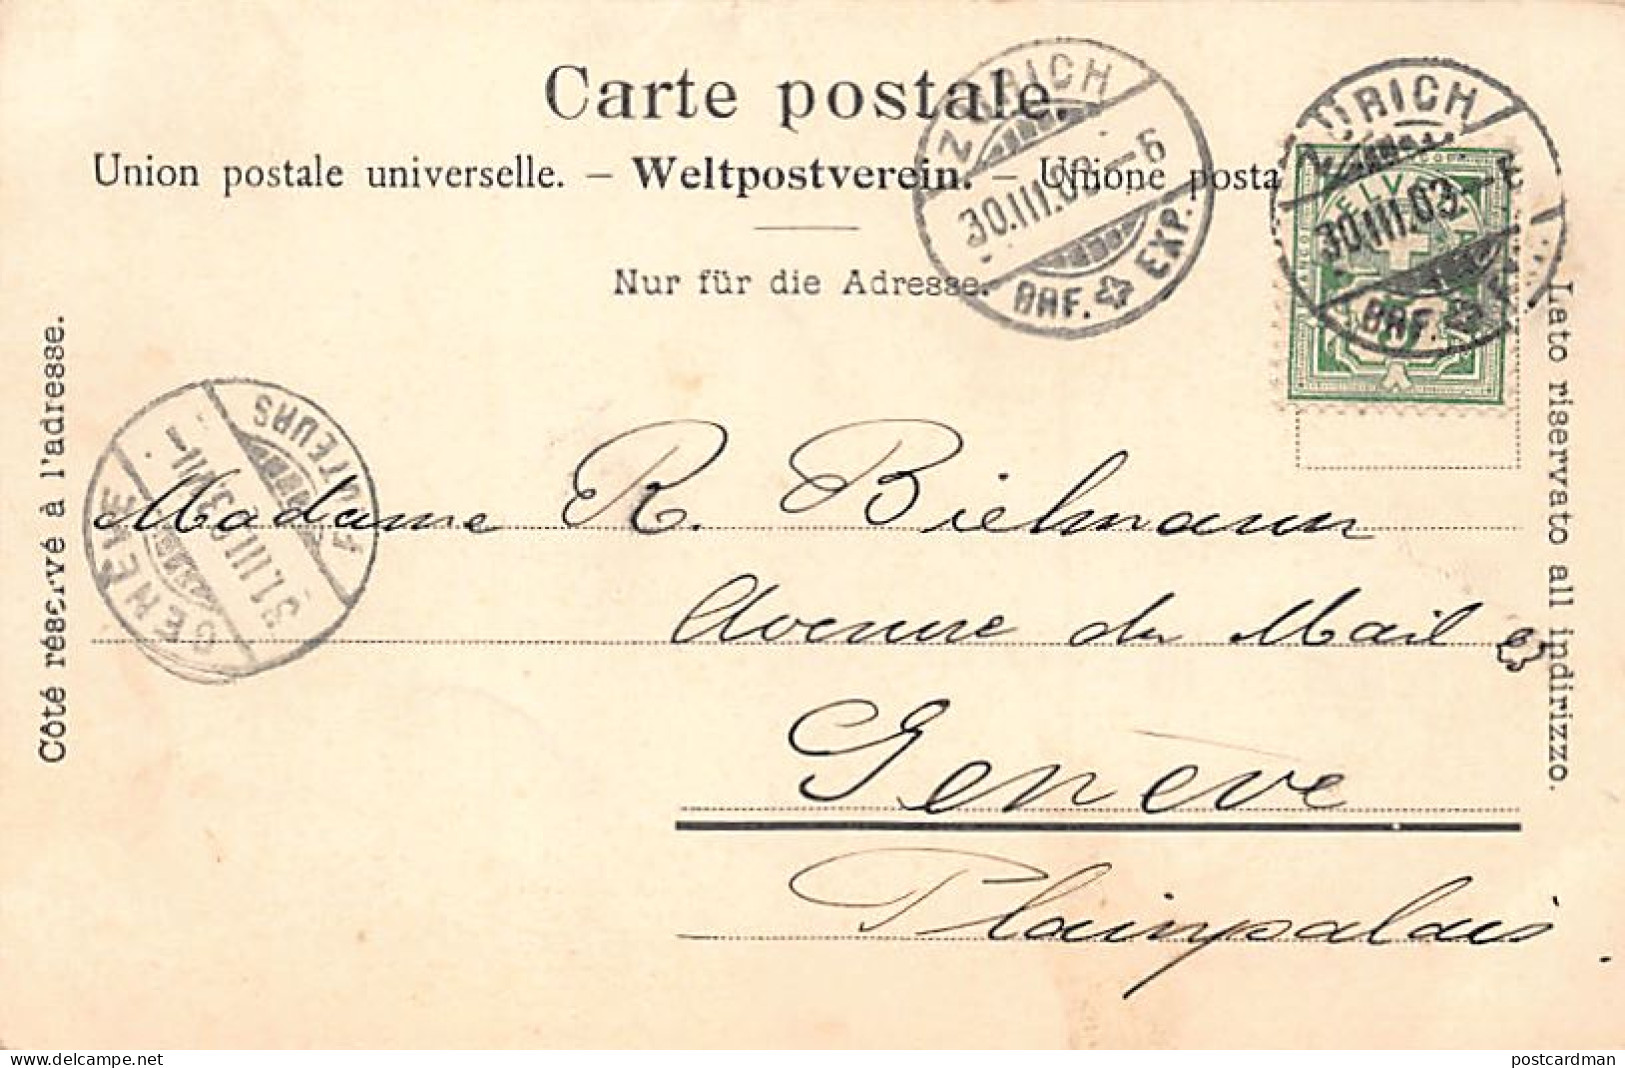 Carte postale.
Union postale universelle. – Weltpostverein. – Unione posta
Nur für die Adresse.
Côté réservé à l'adresse.
Lato riservato all indirizzo.
ZÜRICH
30.III.03.–6
BRF. EXP.
ZÜRICH
30.III.03.–
BRF. EXP.
GENÈVE
31.III.03.
FACTEURS
Madame R. Bielmann
Avenue du Mail
Genève
Plainpalais
postcardman